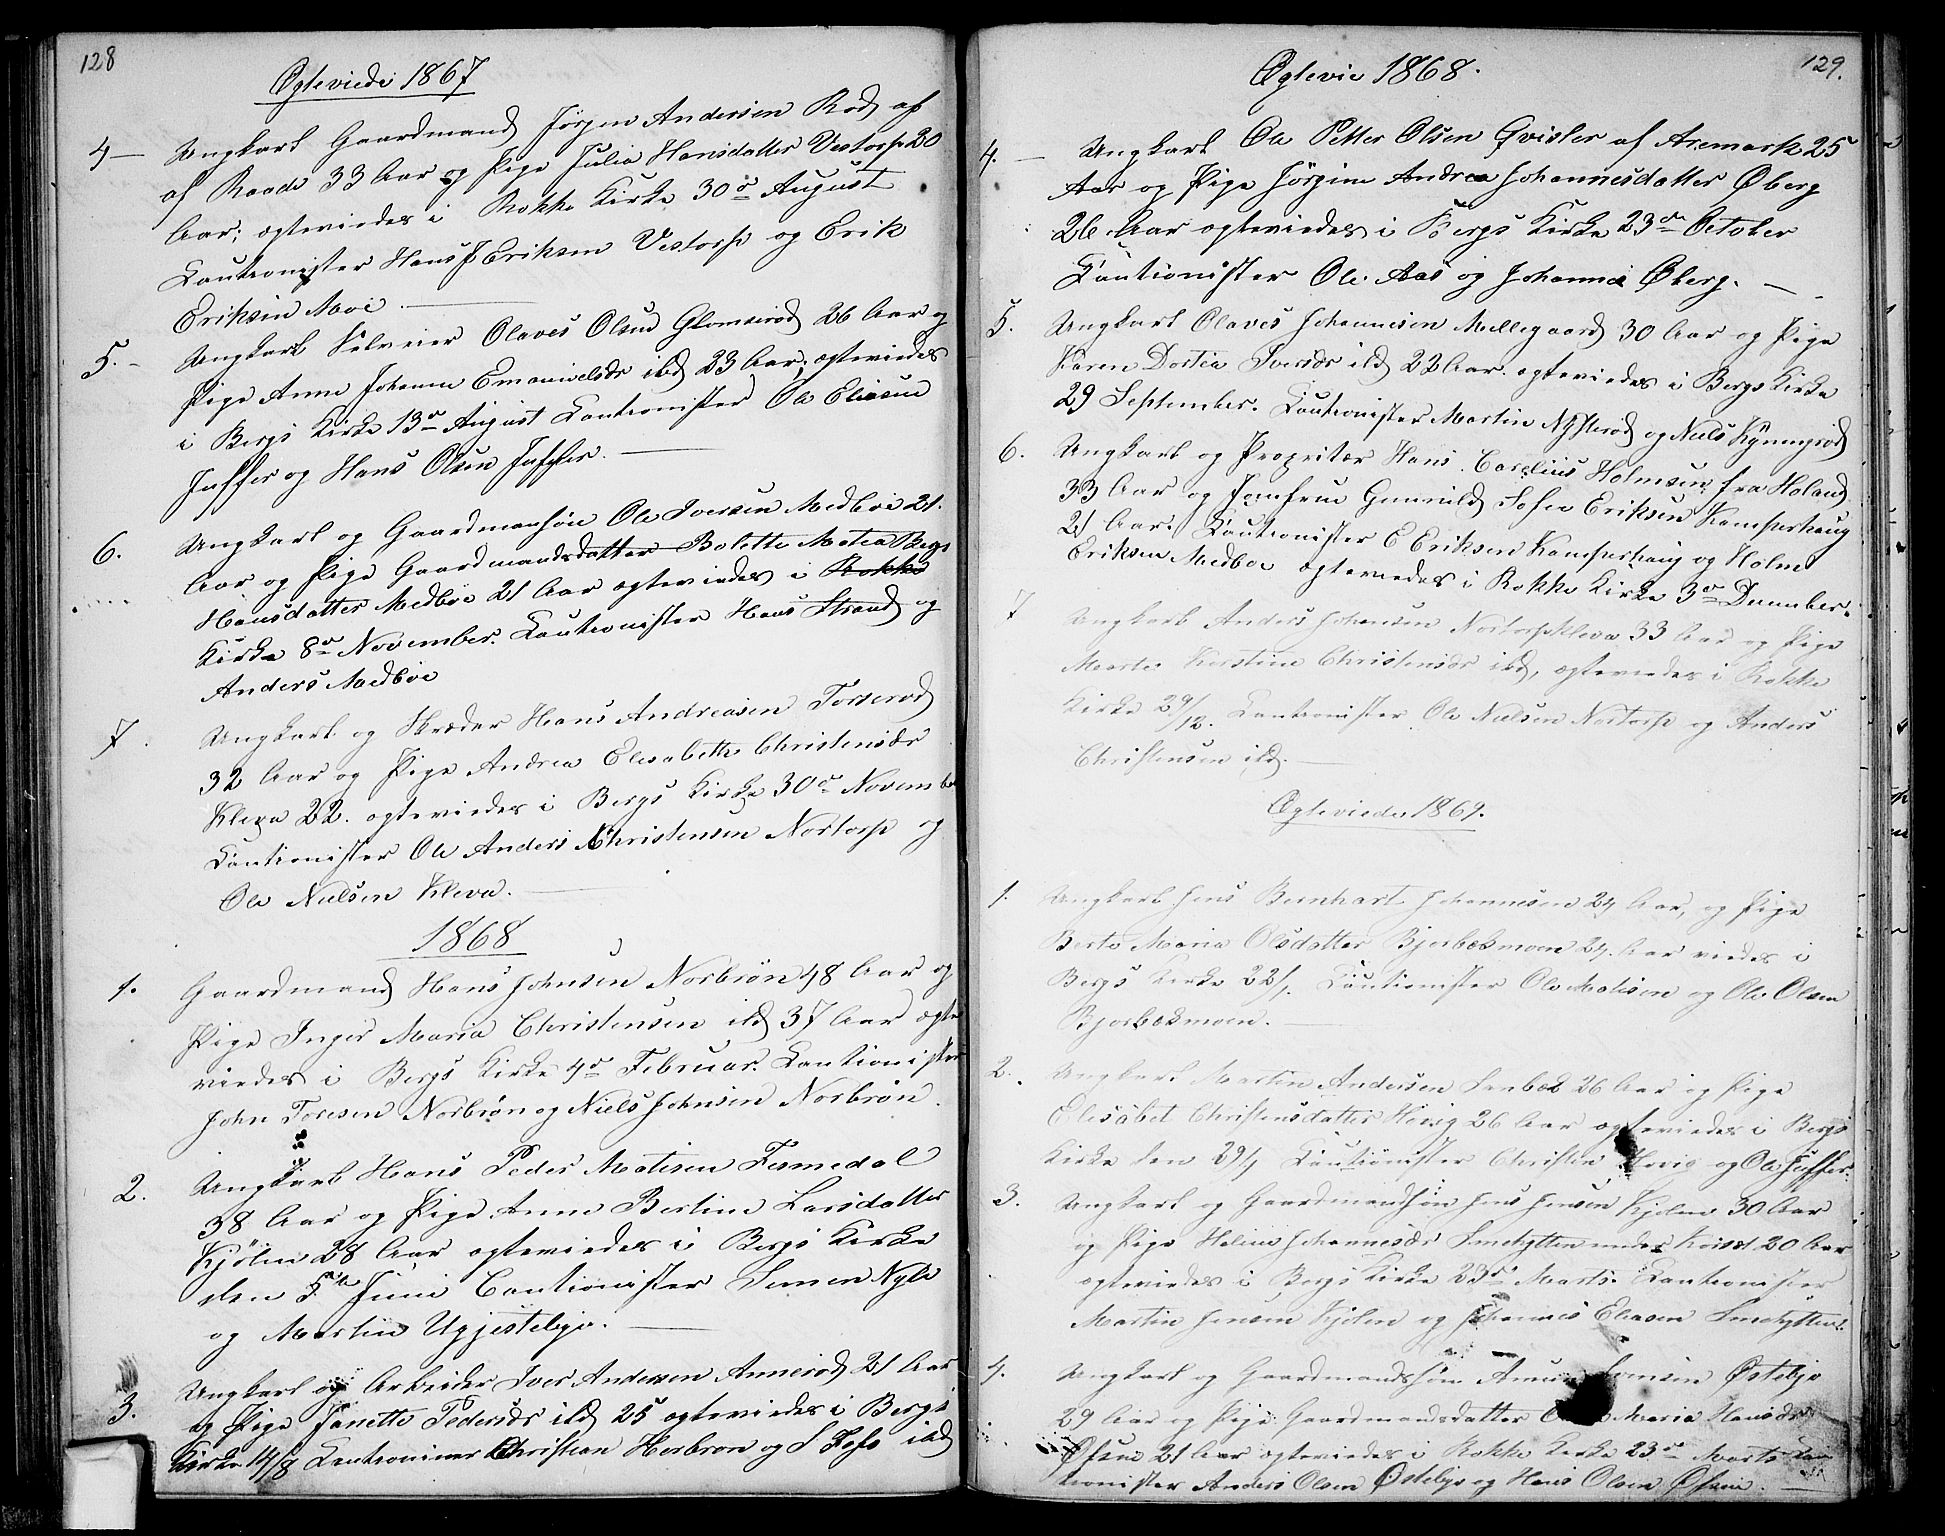 128
Ægteviede 1867
4 — Ungkarl Gaardmand Jörgen Andersen Rød af
af Raade 33 Aar og Pige Julia Hansdatter Vestorp 20
Aar; ægteviedes i Rokke Kirke 30te August
Cautionister Hans J Eriksen Vestorp og Erik
Eriksen Moe
5. - Ungkarl Selveier Olaves Olsen Glomserød 26 Aar og
Pige Anne Johanne Emanuelsdr ibd 23 Aar; ægteviedes
i Bergs Kirke 13de August Cautionister Ole Eliasen
og Hans Olsen
6. Ungkarl og Gaardmansøn Ole Iversen Medböe 21.
Aar og Pige Gaardmandsdatter Bolette Matea Bergs
Hansdatter Medböe 21 Aar ægteviedes i Rokke
Kirke 8de November. Cautionister Hans Strand og
Anders Medböe
7. Ungkarl og Skræder Hans Andreasen Torserød
32 Aar og Pige Andrea Elisabeth Christensdr
Kleva 22. ægteviedes i Bergs Kirke 30te Novembe
Cautionister Ole Anders Christensen Nortorp og
Ole Nielsen Kleva.
1868
1. Gaardmand Hans Johnsen Norbrön 48 Aar og
Pige Inger Maria Christensen ibd 37 Aar ægte
viedes i Bergs Kirke 4de Februar. Cautionister
John Toresen Norbrön og Niels Johnsen Norbrön.
2. Ungkarl Hans Peder Matisen Fesmedal
38 Aar og Pige Anne Bertine Larsdatter
Kjölen 28 Aar ægteviedes i Bergs Kirke
den 5te Juni Cautionister Simen Nyle
og Martin Ugjestebye.
3. Ungkarl og Arbeider Iver Andersen Annerød 21 Aar
og Pige Janette Pedersdr ibd 25 ægteviedes i Bergs
Kirke 14/8 Cautioniner Christian Herbron og S Foss ibd
129.
Ægtevie 1868.
4. — Ungkarl Ole Petter Olsen Qvisler af Aremark 25
Aar og Pige Jörgine Andrea Johannesdatter Øberg
26 Aar ægteviedes i Bergs Kirke 23de October
Cautionister Ole Aas og Johannes Øberg.
5. Ungkarl Olaves Johannesen Mellegaard 30 Aar og Pige
Karen Dortea Iversdr ibd 22 Aar. ægteviedes i Bergs Kirke
29 September. Cautionister Martin Nysterød og Niels
6. Ungkarl og Propritær Hans Carelius Holmsen fra Høland
33 Aar og Jomfrue Gunnild Sofie Eriksen Kamperhaug
21 Aar. Cautionister E Eriksen Kamperhaug og Holm
Eriksen Medboe ægteviedes i Rokke Kirke 3de December.
7 Ungkarl Anders Johansen Nortorp Kleva 33 Aar og Pige
Marte Kerstine Christensdr ibd, ægteviedes i Rokke
Kirke 29/12. Cautionister Ole Nielsen Nortorp og Anders
Christensen ibd.
Ægteviede 1869.
1. Ungkarl Jens Bernhart Johannesen 24 Aar, og Pige
Berte Maria Olsdatter Bjorbekmoen 24. Aar viedes i
Bergs Kirke 22/1. Cautionister Ole Matisen og Ole Olsen
Bjorbekmoen.
2. Ungkarl Martin Andersen 26 Aar og Pige
Elisabet Christensdatter 26 Aar ægteviedes i Bergs
Kirke den 29/1 Cautionister Christen og Ole
3. Ungkarl og Gaardmandsøn Jens Jensen Kjølen 30 Aar
og Pige Heline Johannesdr Smehytten under 20 Aar
ægteviedes i Bergs Kirke 23de Marts. Cautionister
Martin Jensen Kjølen og Johannes Eliasen Smehytten.
4. Ungkarl og Gaardmandssøn Østebye
29 Aar og Pige Gaardmandsdatter Maria Hansdr
Øfsen 21 Aar ægteviedes i Rokke Kirke 23de Marts Cau
tionister Anders Olsen Østebye og Hans Olsen